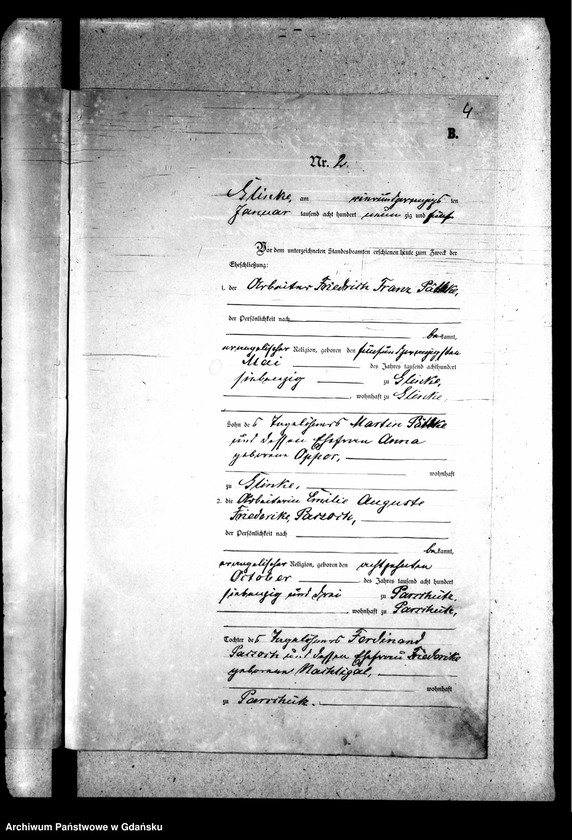 4
B.
Nr. 2.
Glinke, am vierundzwanzigs ten
Januar tausend acht hundert neun zig und fünf
Vor dem unterzeichneten Standesbeamten erschienen heute zum Zweck der
Eheschließung:
1. der Arbeiter Friedrich Franz Päthke,
der Persönlichkeit nach
be kannt,
evangelischer Religion, geboren den fünfundzwanzigsten
Mai des Jahres tausend achthundert
siebenzig zu Glinke,
, wohnhaft zu Glinke,
Sohn des Tagelöhners Martin Päthke
und dessen Ehefrau Anna
geborene Oppor,
wohnhaft
zu Glinke,
2. die Arbeiterin Emilie Auguste
Friederike Parzoch,
der Persönlichkeit nach
be kannt,
evangelischer Religion, geboren den achtzehnten
October des Jahres tausend acht hundert
siebenzig und drei zu Parschütz.
, wohnhaft zu Parschütz,
Tochter des Tagelöhners Ferdinand
Parzoch und dessen Ehefrau Friederike
geborene Nachtigal,
wohnhaft
zu Parschütz.
Archiwum Państwowe w Gdańsku